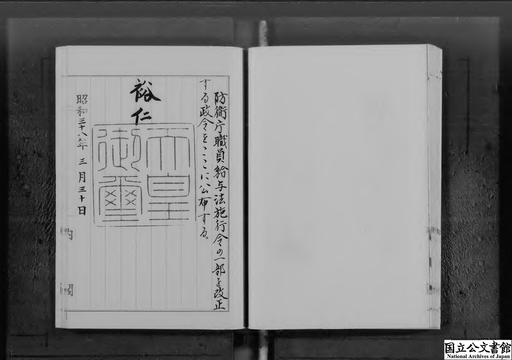 防衛庁職員給与法施行令の一部を改正
する政令をここに公布する。
裕仁
天皇
御璽
昭和三十八年三月三十日
内閣
国立公文書館
National Archives of Japan